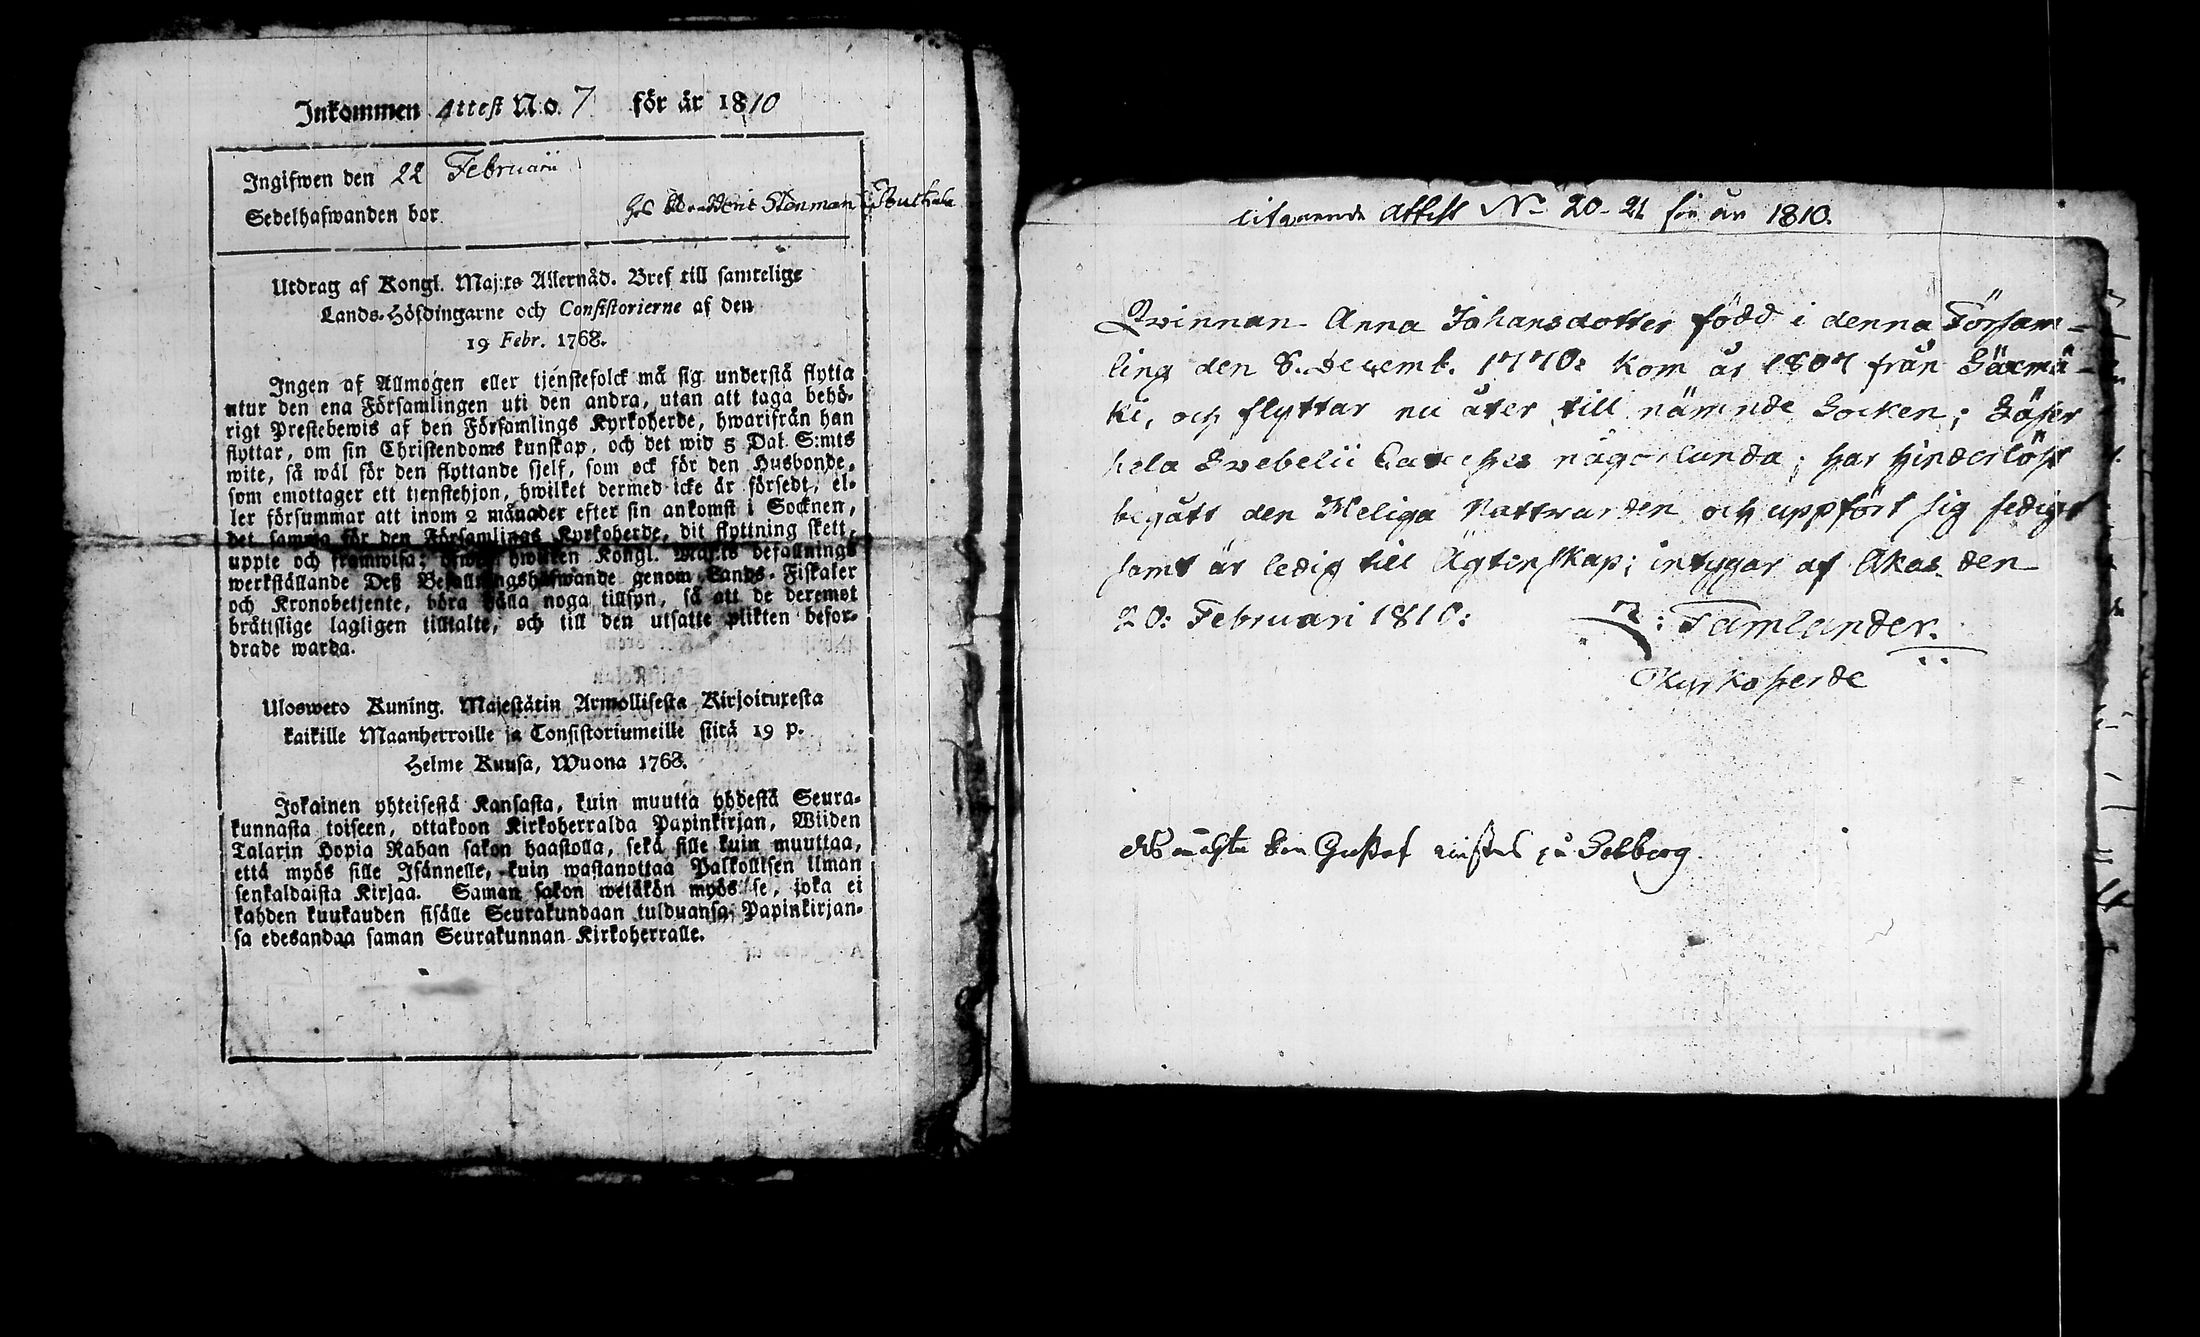 Inkommen Attest N:o. 7 för år 1810
Ingifwen den 22 Februarii
Sedelhafwanden bor hos Stenman i
Utdrag af Kongl. Maj:ts Allernåd. Bref till samtelige
Lands-Höfdingarne och Consistorierne af den
19 Febr. 1768.
Ingen af Allmogen eller tjenstefolck må sig understå flytta
utur den ena Församlingen uti den andra, utan att taga behö-
rigt Prestebewis af den Församlings Kyrkoherde, hwarifrån han
flyttar, om sin Christendoms kunskap, och det wid 5 Dal. S:mts
wite, så wäl för den flyttande sjelf, som ock för den Husbonde,
som emottager ett tjenstehjon, hwilket dermed icke är försedt, el-
ler försummar att inom 2 månader efter sin ankomst i Socknen,
det samma för den Församlings Kyrkoherde, dit flyttning skett,
uppte och framwisa; Kongl. Maj:ts befallnings
werkställande Deß Befallningshafwande genom Lands-Fiskaler
och Kronobetjente, böra hålla noga tillsyn, så att de deremot
bråttslige lagligen tilltalte, och till den utsatte plikten befor-
drade warda.
Ulosweto Kuning. Majestätin Armollisesta Kirjoituxesta
kaikille Maanherroille ja Consistoriumeille siitä 19 p.
Helme Kuusa, Wuona 1768.
Jokainen yhteisestä Kansasta, kuin muutta yhdestä Seura-
kunnasta toiseen, ottakoon Kirkoherralda Papinkirjan, Wiiden
Talarin Hopia Rahan sakon haastolla, sekä sille kuin muuttaa,
että myös sille Isännelle, kuin wastanottaa Palkollisen ilman
senkaldaista Kirjaa. Saman sakon wetäkön myös se, joka ei
kahden kuukauden sisälle Seurakundaan tulduansa, Papinkirjan-
sa edesandaa saman Seurakunnan Kirkoherralle.
Utgående Attest N:o 20-21 för år 1810.
Qwinnan Anna Johansdotter född i denna Försam-
ling den 8. Decemb. 1770: kom år 1807 från Säxmä-
ki, och flyttar nu åter till nämnde Socken; Läser
hela Svebelii Cateches någorlunda; har hinderlöst
begått den Heliga Nattwarden och uppfört sig sedigt
samt är ledig till Ägtenskap; intygar af Akas den
20: Februari 1810: Tamlander.
Kyrkoherde
Gustaf